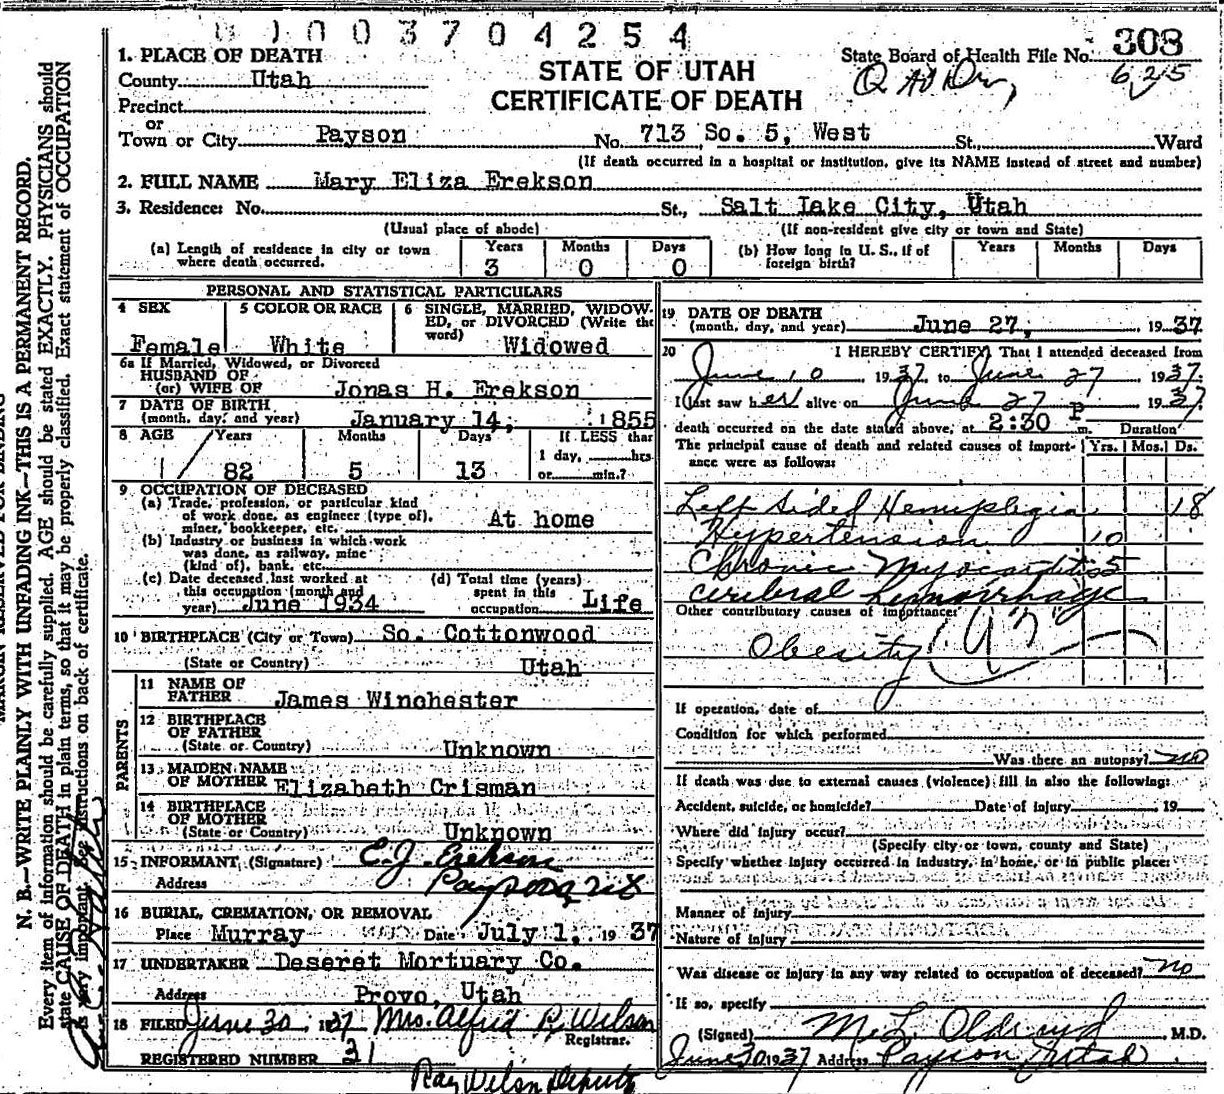 01003704254
1. PLACE OF DEATH
County Utah
Precinct
or
Town or City Payson No. 713 So. 5, West St., Ward
STATE OF UTAH
CERTIFICATE OF DEATH
State Board of Health File No. 308
625
(If death occurred in a hospital or institution, give its NAME instead of street and number)
2. FULL NAME Mary Eliza Erekson
3. Residence: No. St., Salt Lake City, Utah
(Usual place of abode) (If non-resident give city or town and State)
(a) Length of residence in city or town where death occurred. Years 3 Months 0 Days 0
(b) How long in U. S., if of foreign birth? Years Months Days
PERSONAL AND STATISTICAL PARTICULARS
4 SEX Female
5 COLOR OR RACE White
6 SINGLE, MARRIED, WIDOWED, or DIVORCED (Write the word) Widowed
6a If Married, Widowed, or Divorced
HUSBAND OF
(or) WIFE OF Jonas H. Erekson
7 DATE OF BIRTH
(month, day, and year) January 14, 1855
8 AGE Years 82 Months 5 Days 13
If LESS than 1 day, hrs or min.?
9 OCCUPATION OF DECEASED
(a) Trade, profession, or particular kind
of work done, as engineer (type of),
miner, bookkeeper, etc. At home
(b) Industry or business in which work
was done, as railway, mine
(kind of), bank, etc.
(c) Date deceased last worked at
this occupation (month and
year) June 1934
(d) Total time (years)
spent in this
occupation Life
10 BIRTHPLACE (City or Town) So. Cottonwood
(State or Country) Utah
PARENTS
11 NAME OF
FATHER James Winchester
12 BIRTHPLACE
OF FATHER
(State or Country) Unknown
13 MAIDEN NAME
OF MOTHER Elizabeth Crisman
14 BIRTHPLACE
OF MOTHER
(State or Country) Unknown
15 INFORMANT (Signature) E. J. Erekson
Address Payson
16 BURIAL, CREMATION, OR REMOVAL
Place Murray Date July 1, 1937
17 UNDERTAKER Deseret Mortuary Co.
Address Provo, Utah
18 FILED June 30 1937 Mrs. Alfred R. Wilson
Registrar.
REGISTERED NUMBER 31
Ray Wilson Deputy
19 DATE OF DEATH
(month, day, and year) June 27, 1937
20 I HEREBY CERTIFY, That I attended deceased from
June 10 1937, to June 27, 1937.
I last saw her alive on June 27 1937.
death occurred on the date stated above, at 2:30 P m. Duration
The principal cause of death and related causes of importance were as follows: Yrs. Mos. Ds.
Left Sided Hemiplegia 18
Hypertension 10
Chronic Myocarditis 5
Cerebral Hemorrhage
Other contributory causes of importance:
Obesity
If operation, date of
Condition for which performed
Was there an autopsy? no
If death was due to external causes (violence) fill in also the following:
Accident, suicide, or homicide? Date of injury 19
Where did injury occur?
(Specify city or town, county and State)
Specify whether injury occurred in industry, in home, or in public place:
Manner of injury
Nature of injury
Was disease or injury in any way related to occupation of deceased? no
If so, specify
(Signed) M. L. Oldroyd M.D.
June 30 1937 Address Payson Utah
MARGIN RESERVED FOR BINDING
N. B.—WRITE PLAINLY WITH UNFADING INK—THIS IS A PERMANENT RECORD.
Every item of information should be carefully supplied. AGE should be stated EXACTLY. PHYSICIANS should
state CAUSE OF DEATH in plain terms, so that it may be properly classified. Exact statement of OCCUPATION
is very important. See instructions on back of certificate.